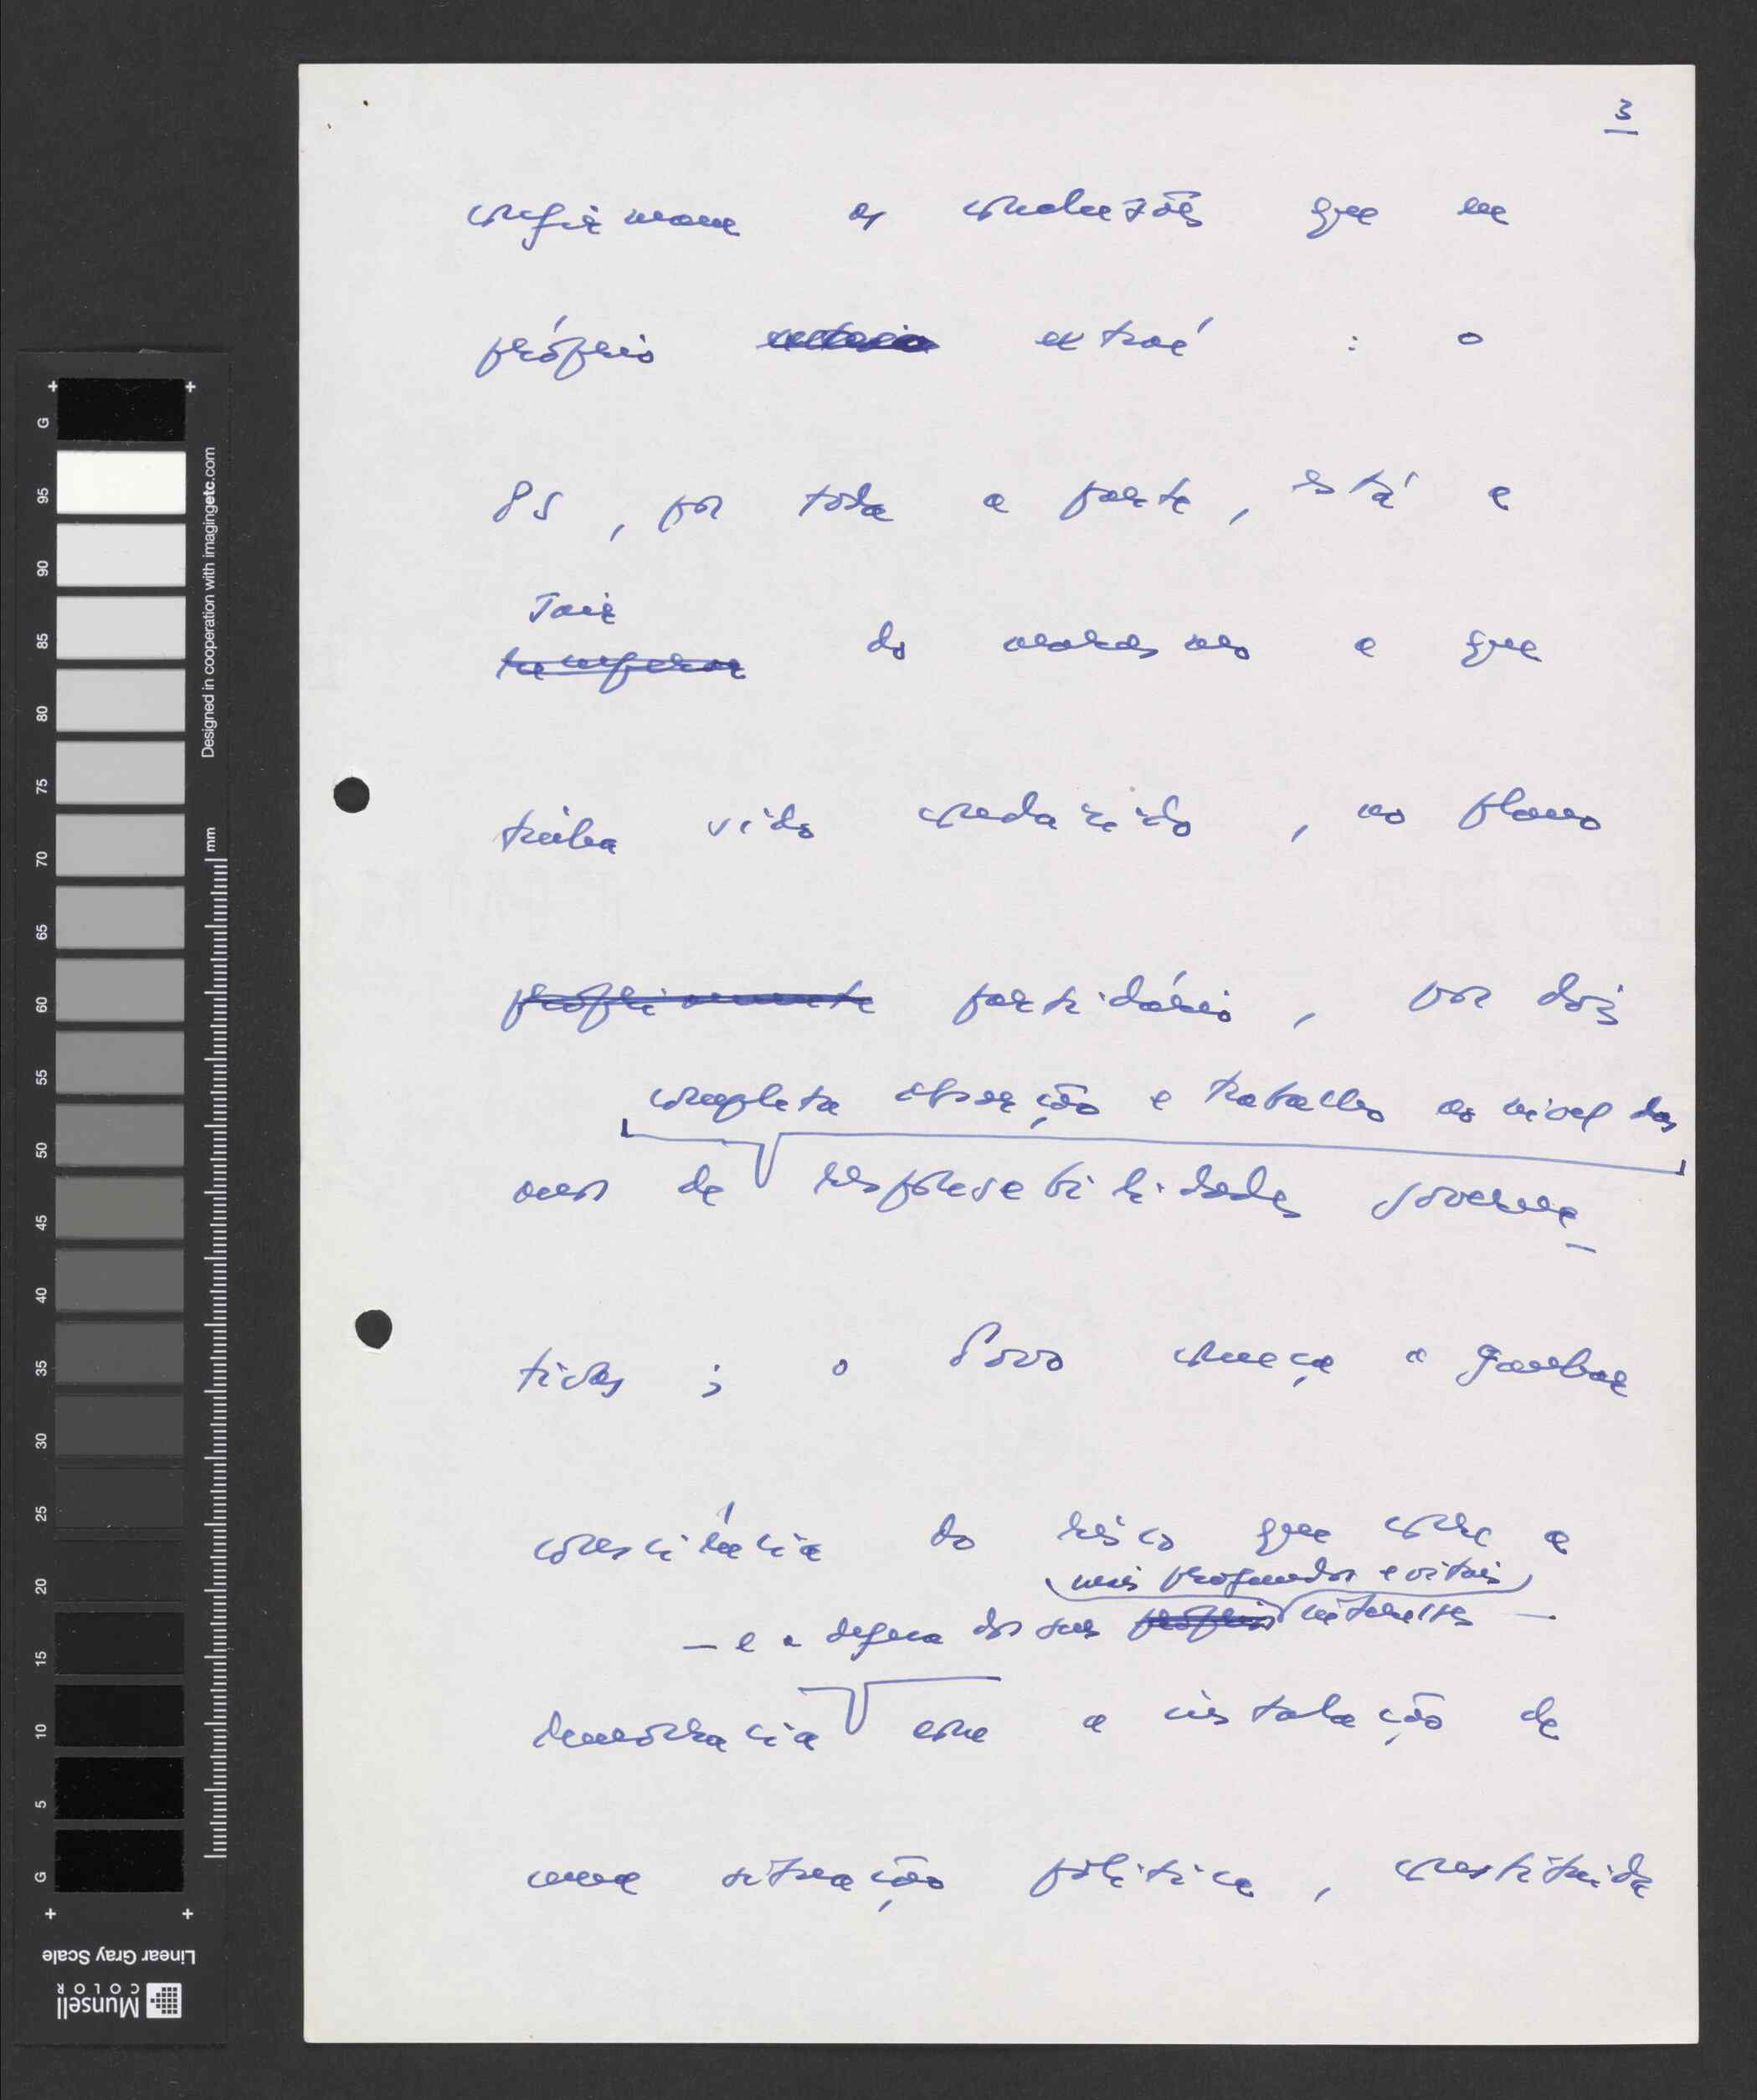 3
confirmam as conclusões que eu
próprio extraí : o
PS , por toda a parte , está a
sair
do marasmo a que
tinha sido conduzido , no plano
propriamente partidário , por dois
completa absorção e trabalho ao nível das
anos de responsabilidades governa-
tivas ; o Povo começa a ganhar
consciência do risco que corre a
mais profundos e vitais
— e a defesa dos seus próprios interesses —
democracia com a instalação de
uma situação política , constituída
G
95
90
85
80
75
70
65
60
55
50
45
40
35
30
25
20
15
10
5
G
Designed in cooperation with imagingetc.com
mm
Linear Gray Scale
Munsell
COLOR